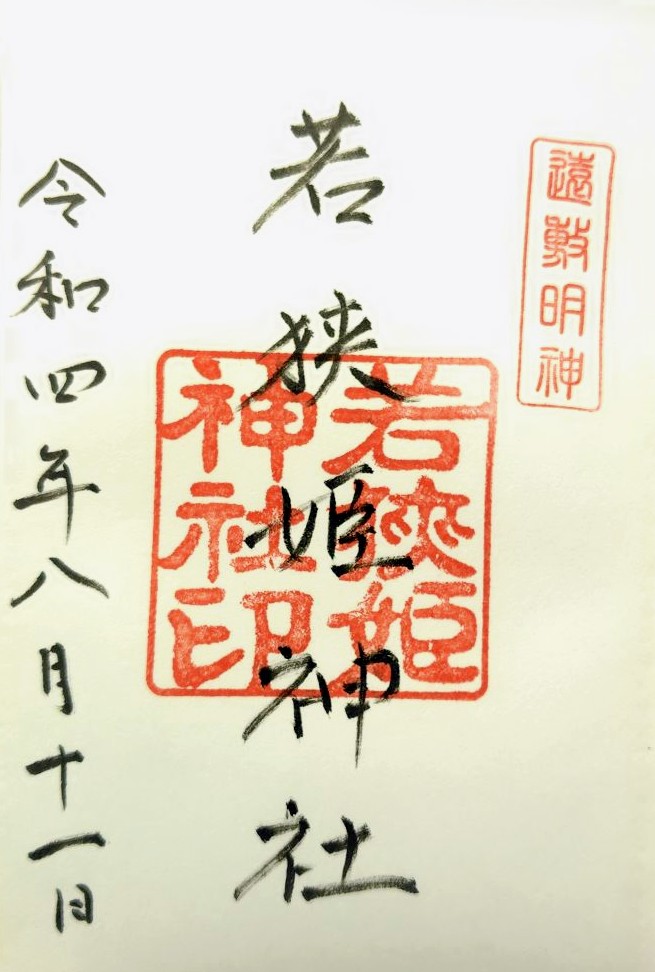 遠敷明神
若狭姫神社
若狭姫
神社印
令和四年八月十一日